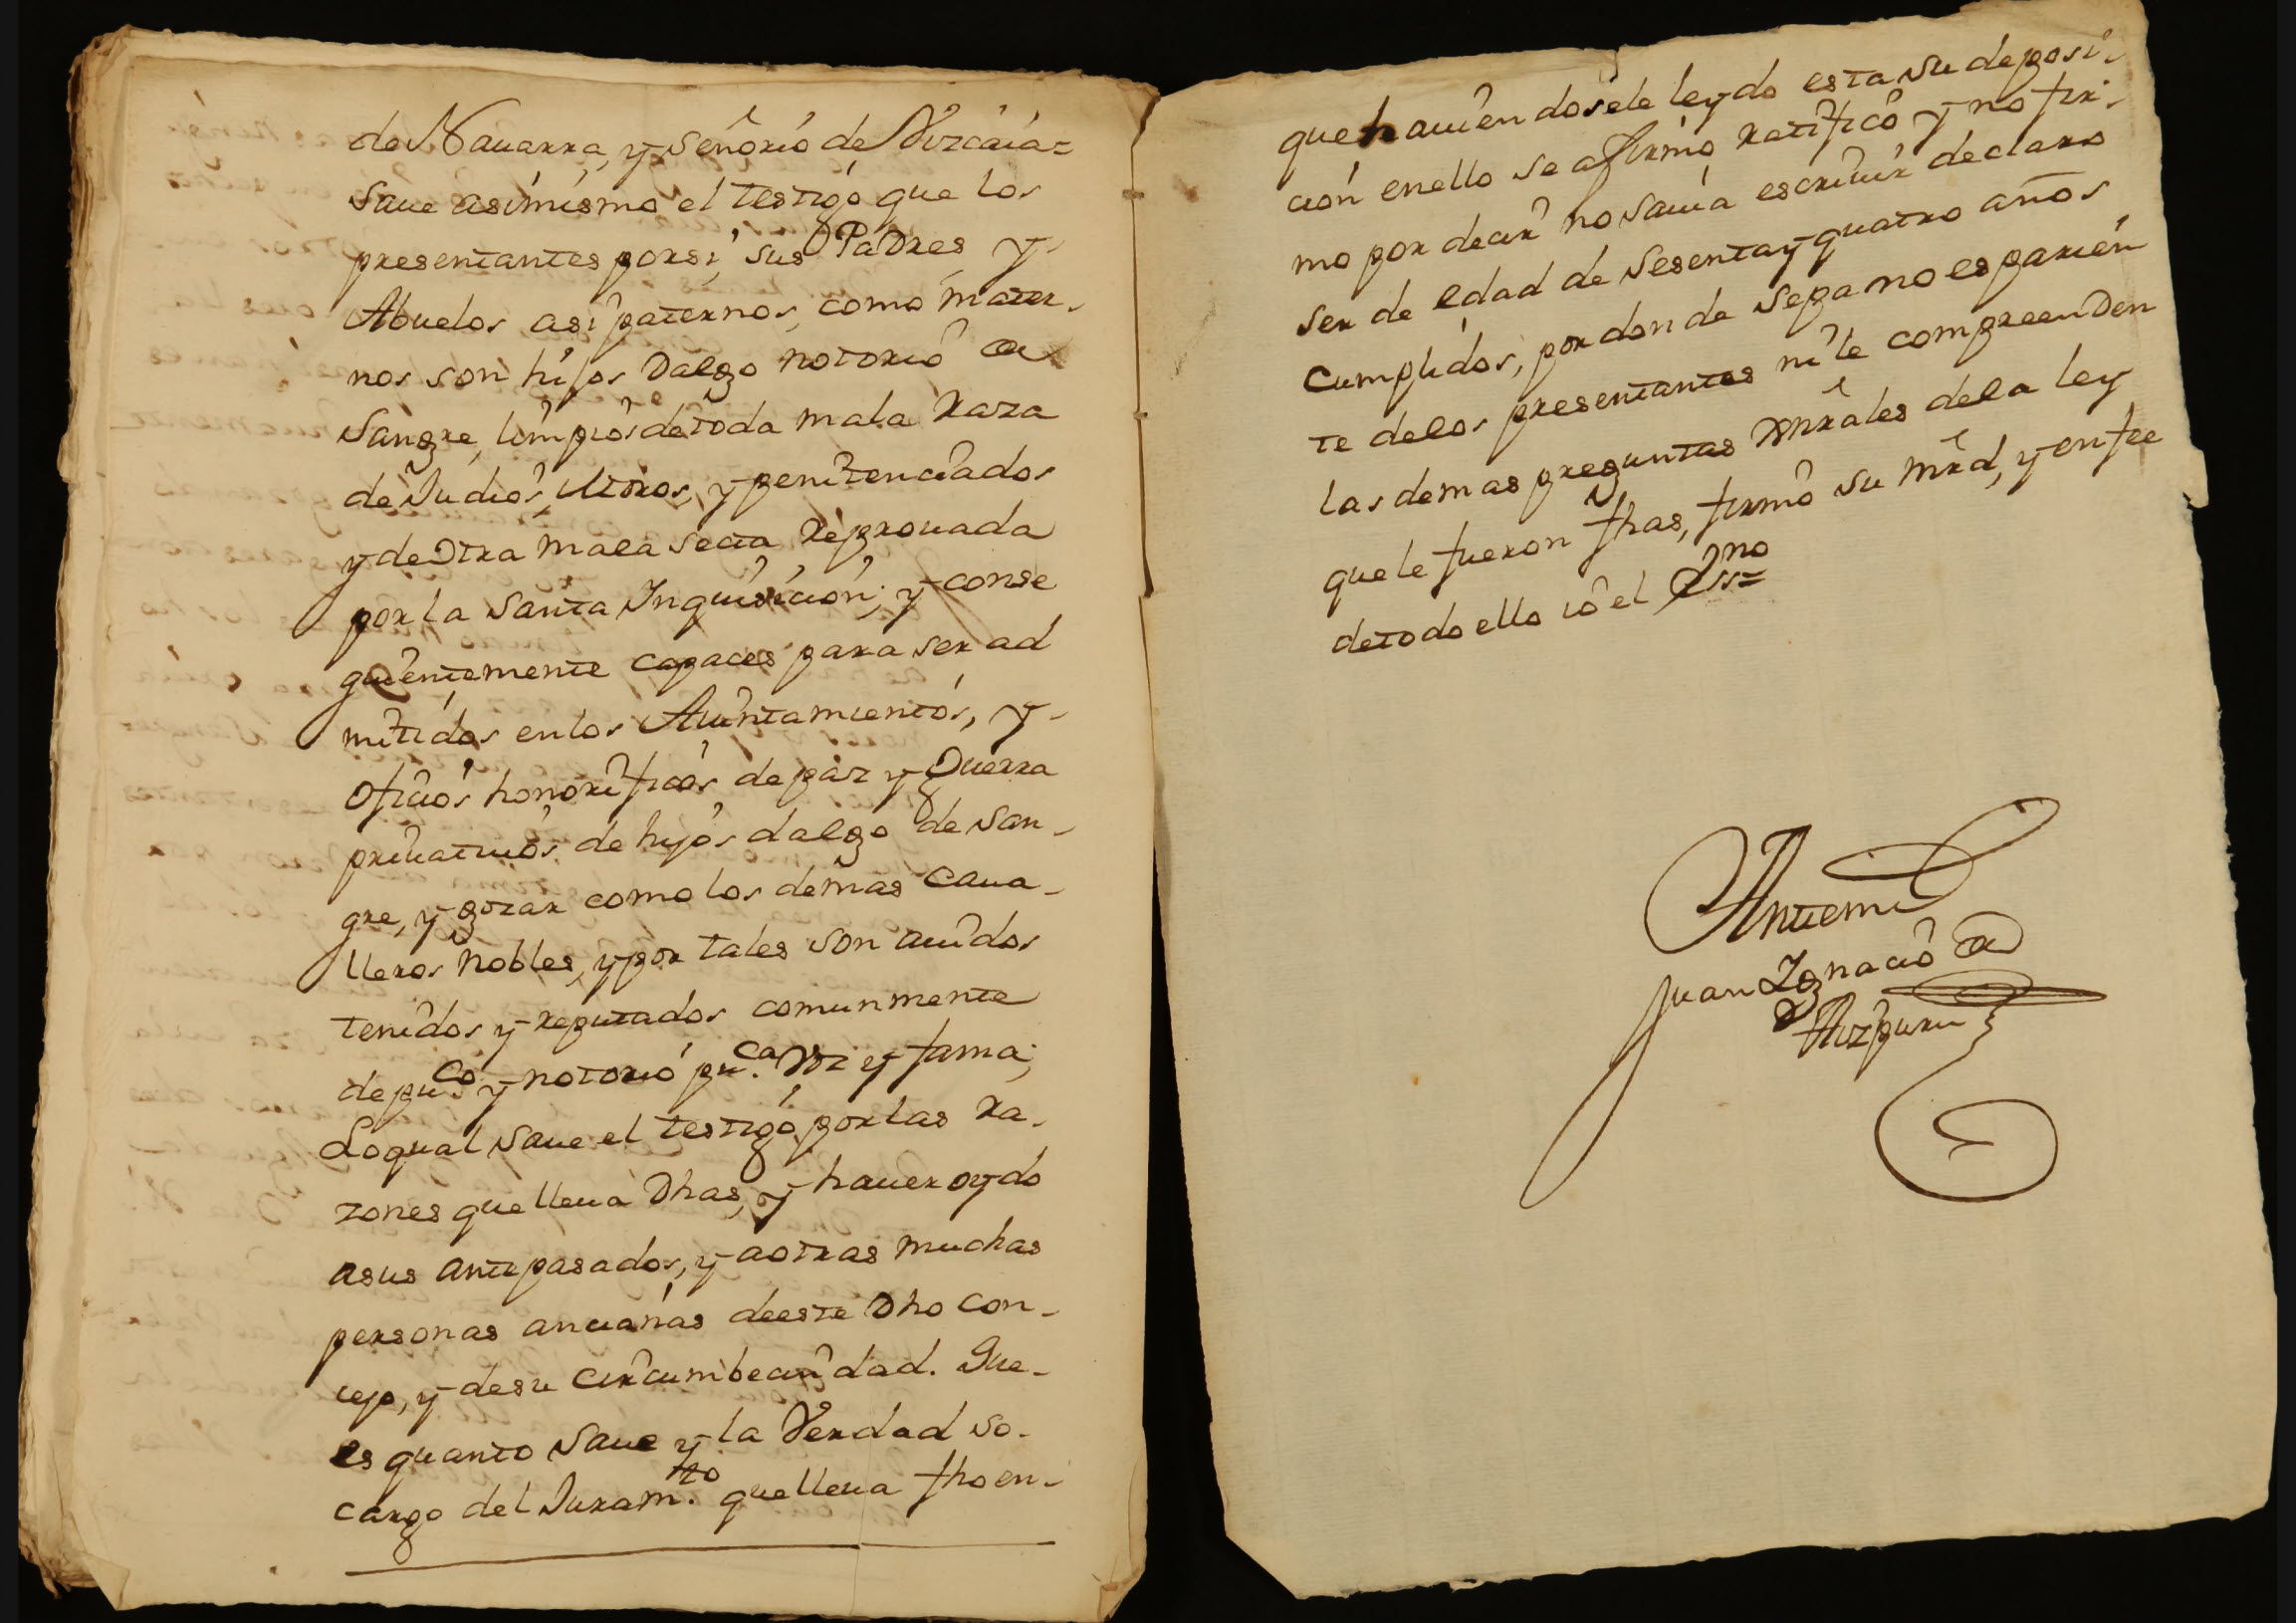 de Nauarra, y Señorio de Vizcaia=
Saue asimismo el testigo que los
presentantes por si, sus Padres, y
Abuelos, asi paternos, como mater-
nos son hijos Dalgo notorio de
Sangre, limpios de toda mala Raza
de Judios, Moros, y penitenciados
y de otra mala secta Reprouada
por la Santa Inquisicion; y conse
quentemente capaces para ser ad
mitidos en los Aiuntamientos, y-
oficios honorificos de paz y Guerra
priuatiuos de hijos dalgo de San-
gre, y gozar como los demas Caua-
lleros Nobles, y por tales son auidos
tenidos y reputados comunmente
de pu.co y notorio pu.ca Voz y fama;
Lo qual saue el testigo por las Ra-
zones que lleua Dhas, y hauer oydo
a sus antepasados, y a otras muchas
personas ancianas de este Dho Con-
cejo, y de su circumbecindad. Que-
es quanto Saue y la Verdad so-
cargo del Juram.to que lleua fho en-
que hauiendosele leydo esta su deposi-
cion en ello se afirmo Ratifico y no fir-
mo por decir no sauia escriuir declaro
ser de edad de Sesenta y quatro años
Cumplidos, por donde sepa no es parien
te de los presentantes ni le compreenden
las demas preguntas Gnrales de la ley
que le fueron fhas, firmo su Mrd, y en fee
de todo ello io el Essno=
Antemi
Juan Ignacio de
Aizpuru